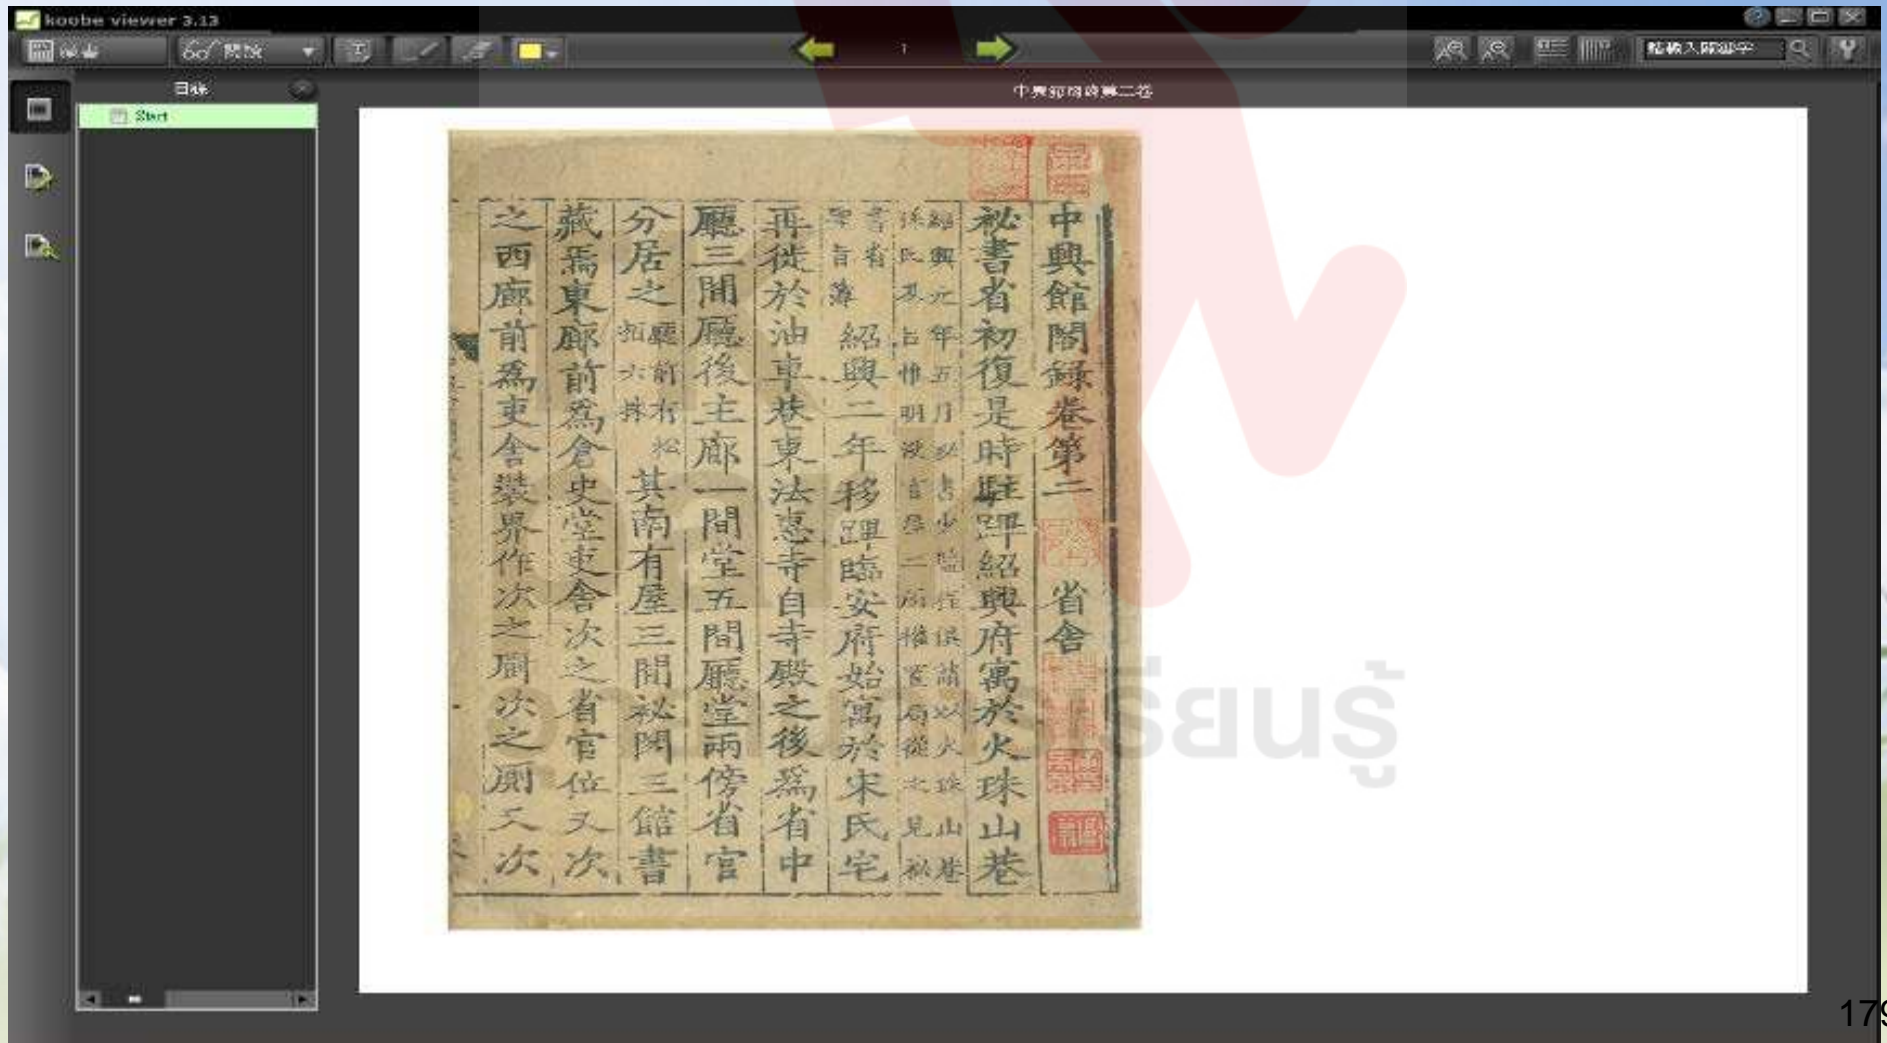 koobe viewer 3.13
閱讀
1
請輸入關鍵字
目錄
Start
中興館閣錄第二卷
中興館閣錄卷第二 省舍
祕書省初復是時駐蹕紹興府寓於火珠山巷
紹興元年五月祕書少監程俱請以火珠山巷
孫氏及呂惟明沒官屋二所權置局從之見祕
書省
聖旨簿
紹興二年移蹕臨安府始寓於宋氏宅
再徙於油車巷東法惠寺自寺殿之後爲省中
廳三間廳後主廊一間堂五間廳堂兩傍省官
分居之 廳前有松 柏六株 其南有屋三間祕閣三館書
藏焉東廊前爲倉史堂吏舍次之省官位又次
之西廊前爲吏舍裝界作次之厨次之厠又次
รียนรู้
179